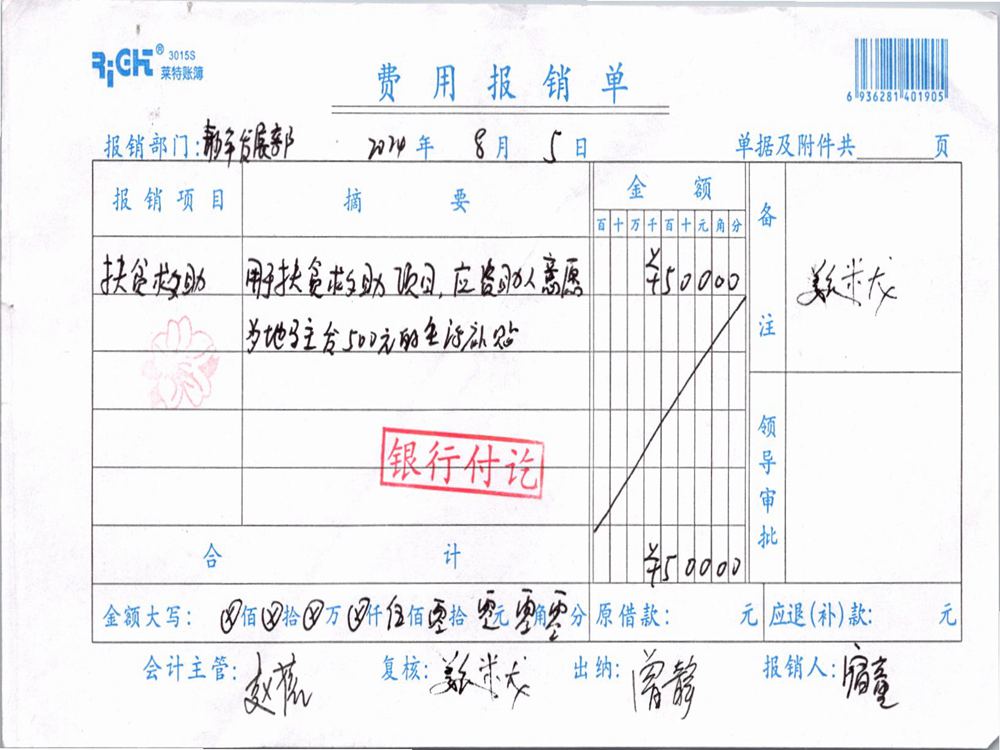 RiCHT® 3015S
莱特账簿
费用报销单
6 936281 401905
报销部门: 发展部 2024年 8月 5日 单据及附件共 页
报销项目 摘要 金额 备注
百十万千百十元角分
扶贫救助 用于扶贫救助项目,应资助人意愿 ¥50000
为地 500元的生活补贴
银行付讫
领导审批
合计 ¥50000
金额大写: ⊗佰⊗拾⊗万⊗仟伍佰零拾零元零角零分 原借款: 元 应退(补)款: 元
会计主管: 赵 复核: 出纳: 曾静 报销人: